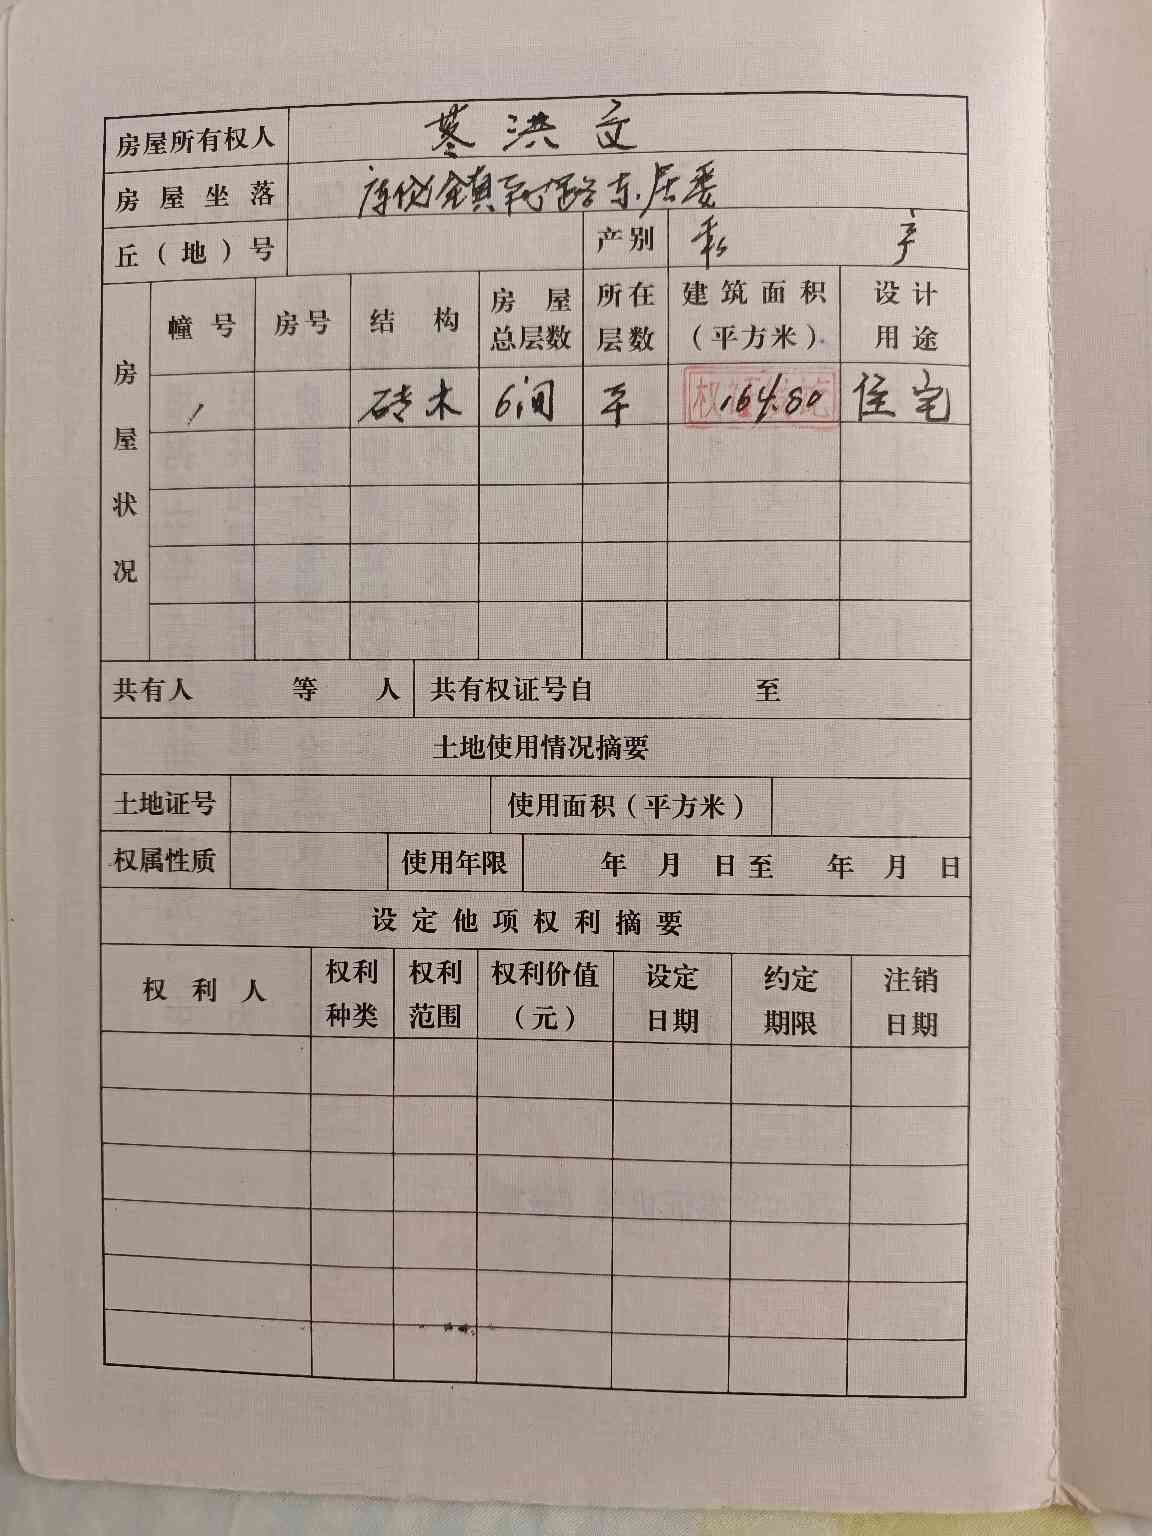 房屋所有权人 洪文
房屋坐落 镇 路东居委
丘（地）号 产别 私 产
房屋状况
幢号 房号 结构 房屋总层数 所在层数 建筑面积（平方米） 设计用途
1 砖木 6间 平 164.80 住宅
共有人 等 人 共有权证号自 至
土地使用情况摘要
土地证号 使用面积（平方米）
权属性质 使用年限 年 月 日至 年 月 日
设定他项权利摘要
权利人 权利种类 权利范围 权利价值（元） 设定日期 约定期限 注销日期